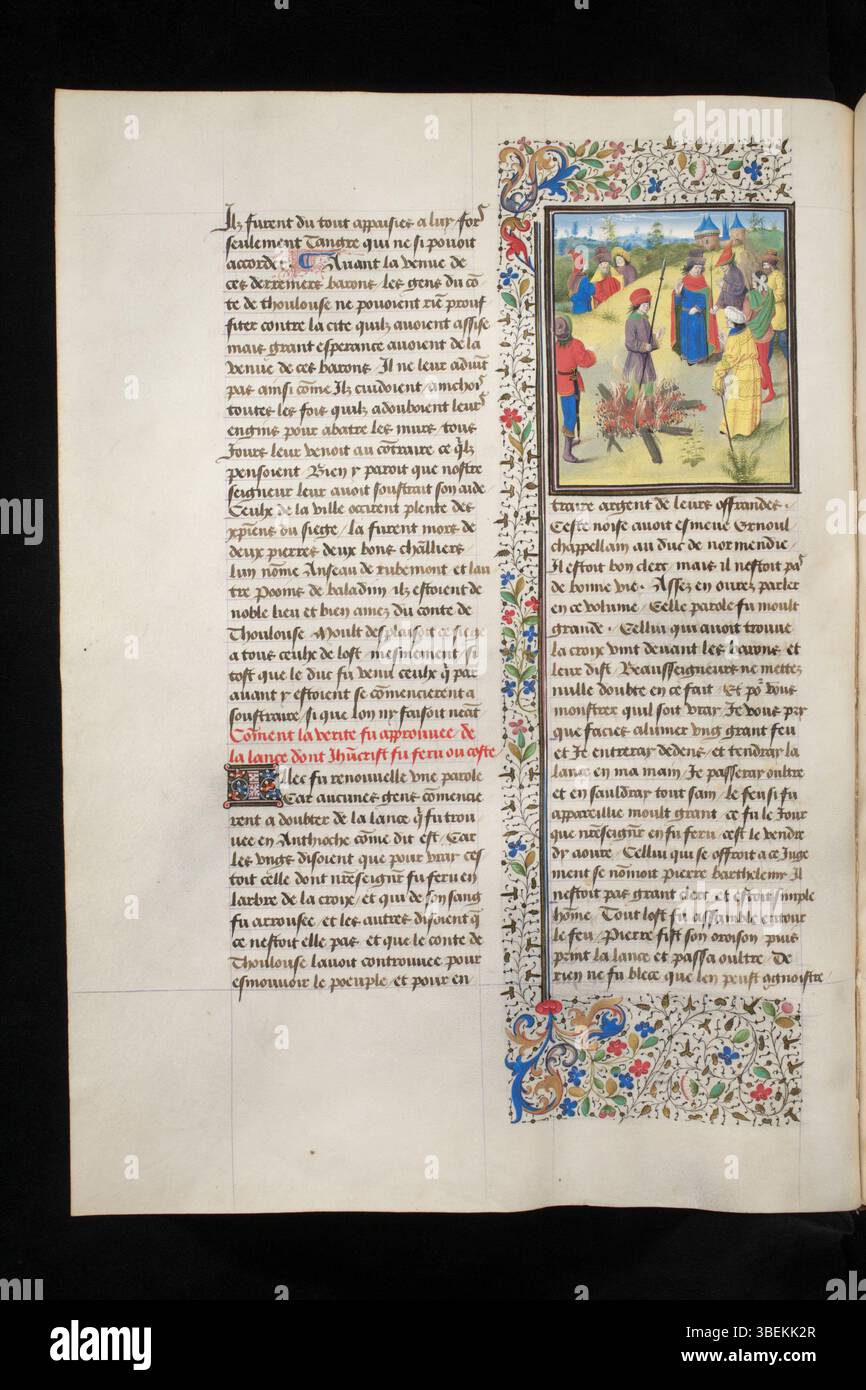 Ilz furent du tout appaisies a luy fors
seulement Tangre qui ne si pouoit
accorder. Auant la venue de
ces derreniers barons / les gens du cō
te de thoulouse ne pouoient riē prouf
fiter contre la cite quilz auoient assise
mais grant esperance auoient de la
venue de ces barons / Il ne leur aduīt
pas ainsi cōme Ilz cuidoient / amchois
toutes les fois quilz adouboient leurs
engins pour abatre les murs tous
Jours leur venoit au cōtraire ce q̄lz
pensoient / Bien y paroit que nostre
seigneur leur auoit soustrait son aide
Ceulx de la ville occirent plente des
xp̄iens du siege / la furent mors de
deux pierres deux bons ch̄lliers
lun nōme Anseau de ribemont et lau
tre Poons de baladun ilz estoient de
noble lieu et bien amez du conte de
Thoulouse / Moult desplaisoit ce siege
a tous ceulx de lost / mesmement si
tost que le duc fu venu ceulx q̄ par
auant y estoient se cōmencierent a
soustraire / si que lon ny faisoit neāt
Cōment la verite fu approuuee / de
la lance dont Jhūcrist fu feru ou coste
Illec fu renouuelle vne parole
Car aucunes gens cōmencie
rent a doubter de la lance q̄ fu trou
uee en Anthioche cōme dit est / Car
les vngs disoient que pour vray ces
toit celle dont nr̄eseignr̄ fu feru en
larbre de la croix / et qui de son sang
fu arrousee / et les autres disoient q̄
ce nestoit elle pas / et que le conte de
Thoulouse lauoit controuuee pour
esmouuoir le poeuple / et pour en
traire argent de leurs offrandes .
Ceste noise auoit esmeue Ernoul
chappellain au duc de normendie /
Il estoit bon clerc / mais il nestoit pas
de bonne vie . Assez en ourez parler
en ce volume / Celle parole fu moult
grande . Cellui qui auoit trouue
la croix vint deuant les barons et
leur dist / Beausseigneurs ne mettez
nulle doubte en ce fait / Et po᷑ vous
monstrer quil soit vray Je vous pry
que facies alumer vng grant feu
et Je entreray dedens / et tendray la
lance en ma main / Je passeray oultre
et en sauldray tout sain / le feu si fu
appareillie moult grant / ce fu le Jour
que nr̄eseignr̄ en fu feru / cest le vendre
dy aoure / Cellui qui se offroit a ce Juge
ment se nōmoit pierre barthelemy Il
nestoit pas grant clerc et estoit simple
hōme / Tout lost fu assemble entour
le feu / Pierre fist son oroison puis
print la lance et passa oultre / De
rien ne fu blece que len peust ɔgnoistre
alamy
alamy
Image ID: 3BEKK2R
www.alamy.com